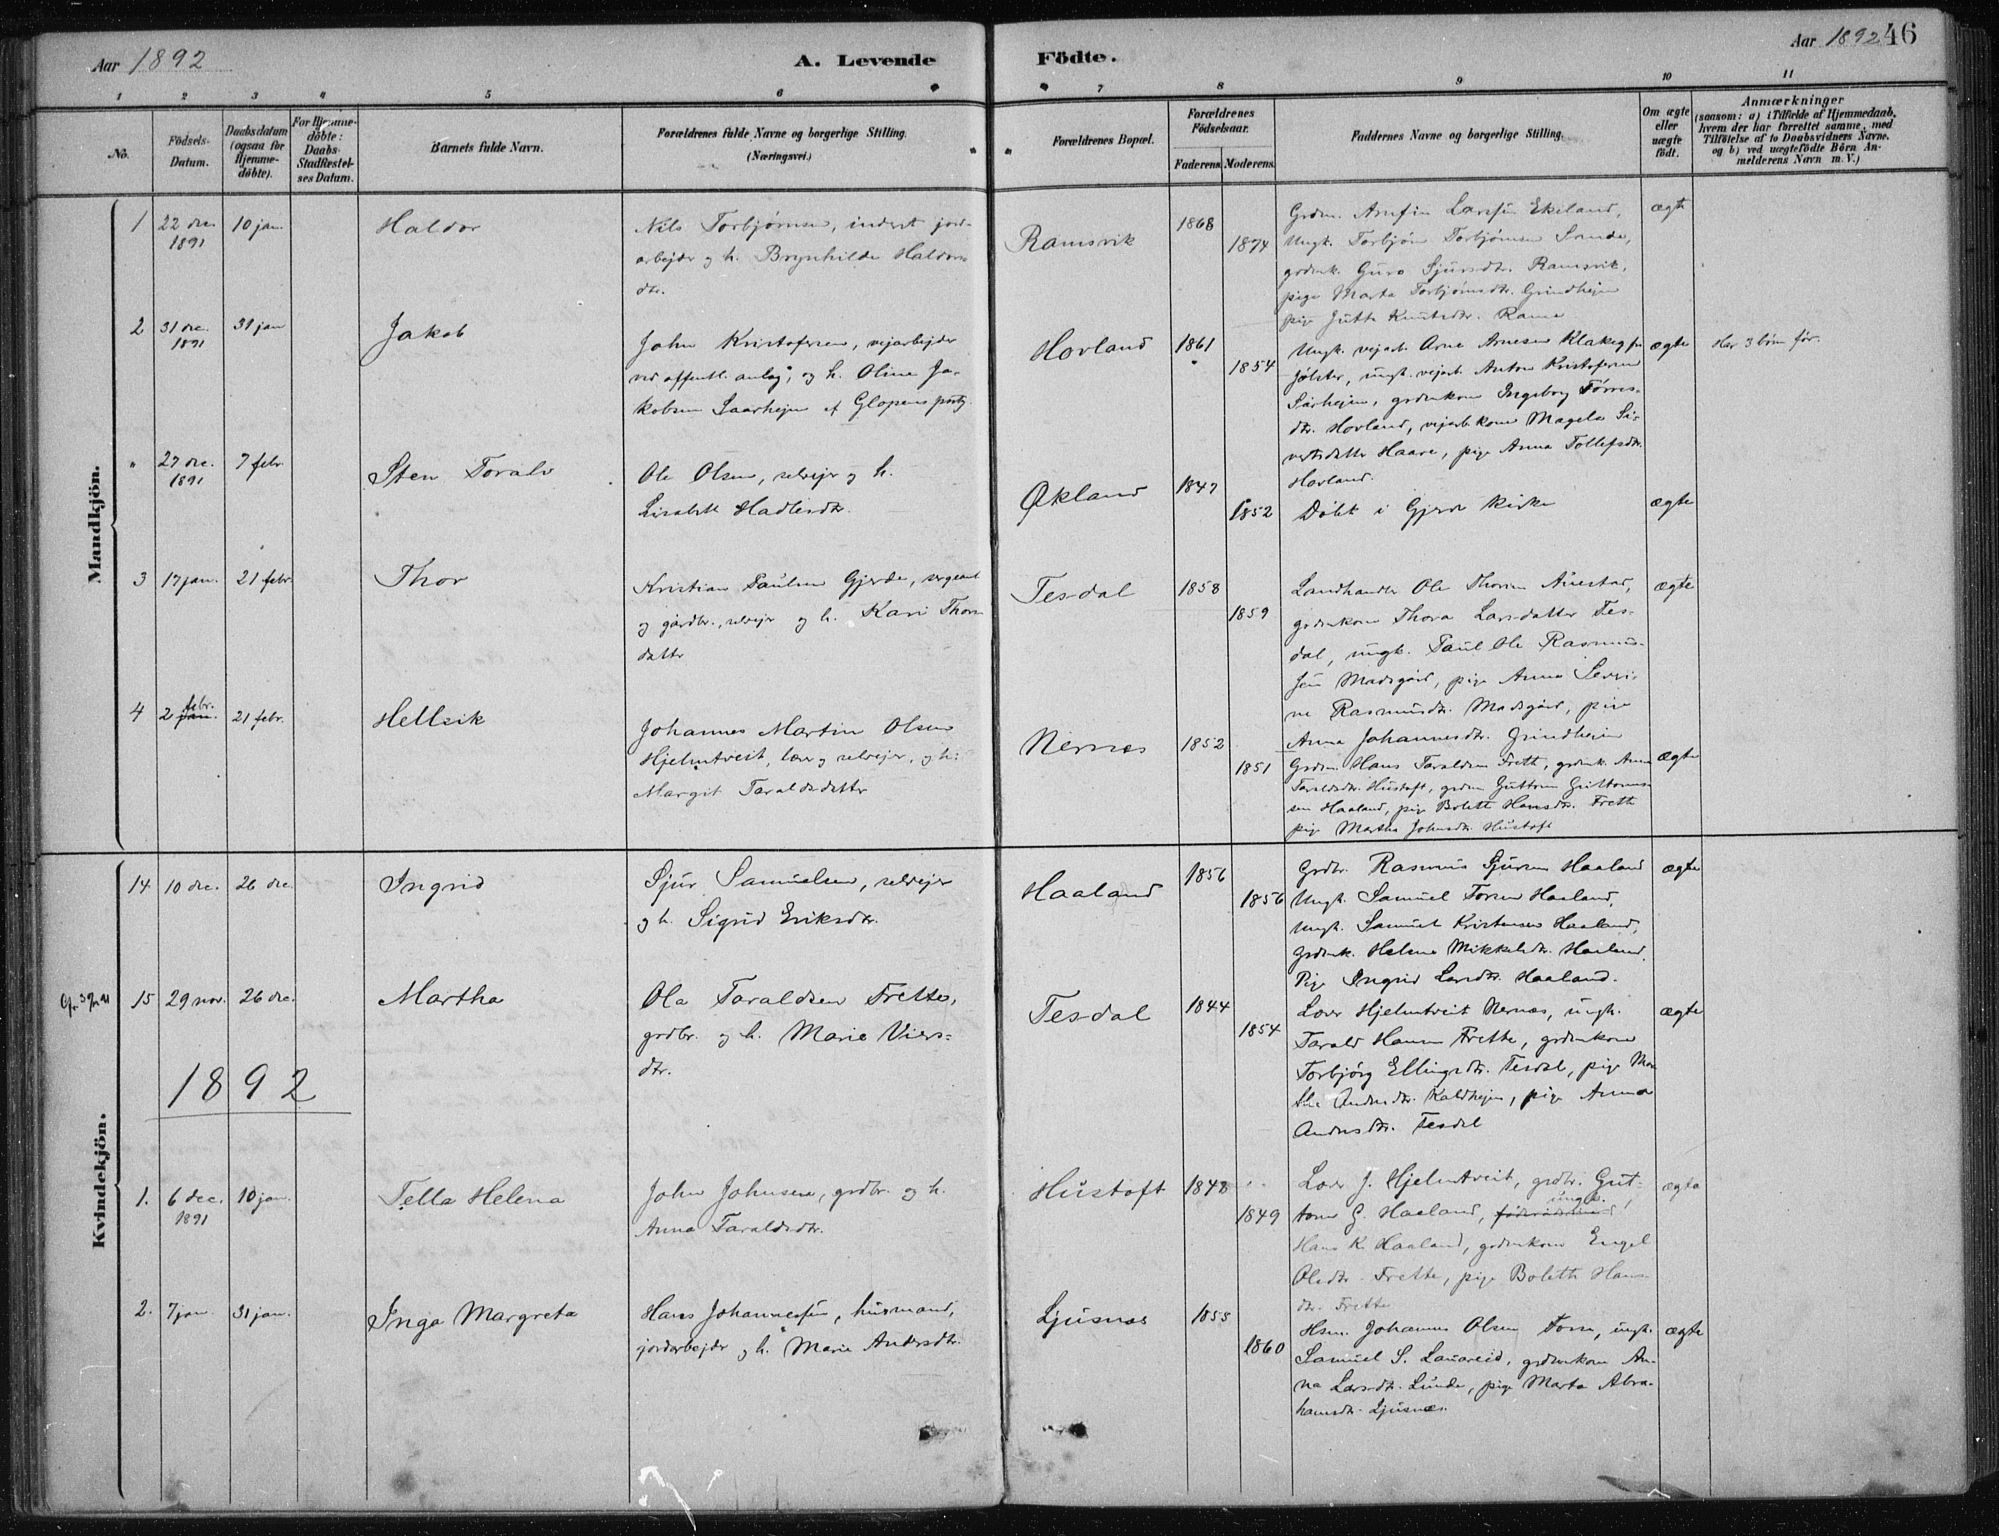 Aar 1892
A. Levende
Födte.
Aar 1892 46
1 2 3 4 5 6 7 8 9 10 11
No.
Födsels-
Datum.
Daabsdatum
(ogsaa for
Hjemme-
döbte).
For Hjemme-
döbte:
Daabs-
Stadfæstel-
ses Datum.
Barnets fulde Navn.
Forældrenes fulde Navne og borgerlige Stilling.
(Næringsvei.)
Forældrenes Bopæl.
Forældrenes
Födselsaar.
Faderens. Moderens.
Faddernes Navne og borgerlige Stilling.
Om ægte
eller
uægte
födt.
Anmærkninger
(saasom: a) i Tilfælde af Hjemmedaab,
hvem der har forrettet samme, med
Tilföielse af to Daabsvidners Navne.
og b) ved uægtefödte Börn An-
melderens Navn m. V.)
Mandkjön.
1 22 dec. 10 jan. Haldor
1891
Nils Torbjørnsen, inderst jord-
arbejder og h. Brynhilde Haldors-
dtr.
Ramsvik 1868
1874
Grdm. Arnfin Larsen Ekeland,
Ungk. Torbjørn Torbjørnsen Sande,
grdmk. Guro Sjursdtr. Ramsvik,
pige Marta Torbjørnsdtr. Grindhejm
pige Jutta Knutsdtr. Rame
ægte
2 31 dec. 31 jan Jakob
1891
John Kristofersen, vejarbejder
ved offentl. anlæg, og h. Oline Ja-
kobsen Saarhejm af Glopens pstg.
Hovland 1861
1854
Ungk. vejarb. Arne Arnesen Klakeg fra
Jølster, ungk. vejarb. Anton Kristofersen
Sårhejm, grdmkone Ingeborg Tørres-
dtr. Hovland, vejarb.kone Magela Si-
vertsdatter Haare, pige Anna Tollefsdtr.
Hovland.
ægte Har 3 børn før.
" 27 dec. 7 febr. Sten Toralv
1891
Ole Olsen, selvejer og h.
Lisabeth Hadlesdtr.
Økland 1847
1852 Døbt i Gjerde kirke ægte
3 17 jan. 21 febr. Thor
Kristian Paulsen Gjerde, sergeant
og gårdbr., selvejer og h. Kari Thors-
datter
Tesdal 1858
1859
Landhandler Ole Thorsen Auestad,
grdmkone Thora Larsdatter Tes-
dal, ungk. Paul Ole Rasmus-
sen Madsgård, pige Anna Seri-
ne Rasmusdtr. Madsgård, pige
Anna Johannesdtr. Grindhejm
ægte
4 2 jan. febr. 21 febr. Hellvik
Johannes Martin Olsen
Hjelmtveit, lærer og selvejer, og h.
Margit Taraldsdatter
Nernæs 1852
1851
Grdm. Hans Taraldsen Frette, grdmk. Anna
Taraldsdtr. Hustoft, grdm Guttorm Guttorms-
sen Haaland, pige Bolett Hansdtr. Frette
pige Martha Johnsdtr. Hustoft
ægte
Kvindekjön.
14 10 dec. 26 dec. Ingrid
Sjur Samuelsen, selvejer
og h. Sigrid Eriksdtr.
Haaland 1856
1856
Grdbr. Rasmus Sjursen Haaland
Ungk. Samuel Torsen Haaland,
Ungk. Samuel Kristensen Haaland,
Grdmk. Helene Mikkelsdtr. Haaland.
Pige Ingrid Larsdtr. Haaland.
ægte
15 29 nov. 26 dec. Martha
Ola Taraldsen Frette,
grdbr. og h. Marie Viers-
dtr.
Tesdal 1844
1854
Lærer Hjelmtveit Nernæs, ungk.
Tarald Hansen Frette, grdmkone
Torbjørg Ellingsdtr. Tesdal, pige Mar-
tha Andersdtr. Kaldhejm, pige Anna
Andersdtr. Tesdal
ægte
1892
1. 6 dec. 10 jan. Tella Helena
1891
John Johnsen, grdbr. og h.
Anna Taraldsdtr.
Hustoft 1848
1849
Lærer J. Hjelmtveit, grdbr. Gut-
torm G. Haaland, ungk.
Hans K. Haaland, grdmkone Engel
Olsdtr. Frette, pige Boleth Hans-
dtr. Frette
ægte
2. 7 jan. 31 jan. Inga Margreta
Hans Johannessen, husmand,
jordarbejder og h. Marie Andersdtr.
Ljusnæs 1855
1860
Hsm. Johannes Olsen Torsn, ungk.
Samuel S. Lauareid, grdmkone An-
na Larsdtr. Lunde, pige Marta Abra-
hamsdtr. Ljusnæs.
ægte